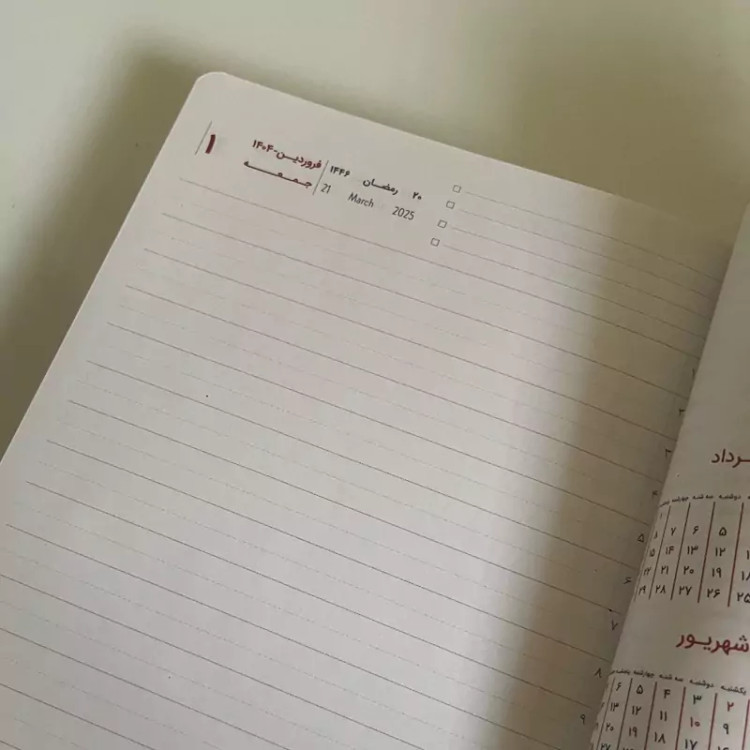 ۱
فروردین-۱۴۰۴
جمعه
۲۰ رمضان ۱۴۴۶
21 March 2025
۵
۶
۷
۸
۹
دوشنبه سه شنبه چهارشنبه
۵ ۶ ۷ ۸
۱۲ ۱۳ ۱۴ ۱۵
۱۹ ۲۰ ۲۱ ۲۲
۲۵ ۲۶ ۲۷ ۲۸ ۲۹
شهریور
یکشنبه دوشنبه سه شنبه چهارشنبه
۲ ۳ ۴ ۵ ۶
۹ ۱۰ ۱۱ ۱۲ ۱۳
۱۷ ۱۸ ۱۹ ۲۰